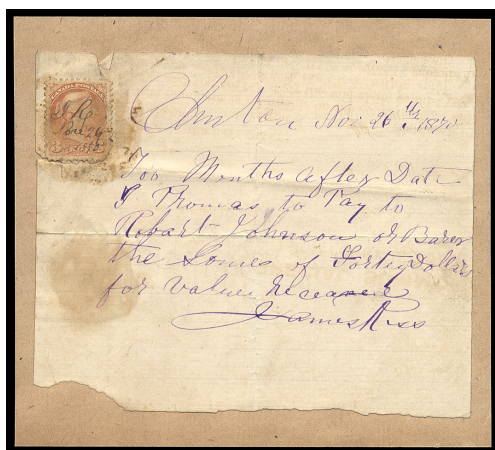 CANADA POSTAGE
J R
Nov 26
Clinton Nov 26th 1870
Too Months After Date
I Promas to Pay to
Robart Johnson or Barer
the Somes of Forty Dollars
for value receaved
James Ross